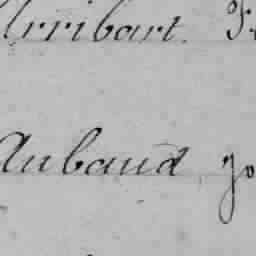 Arribart.
Aubaud